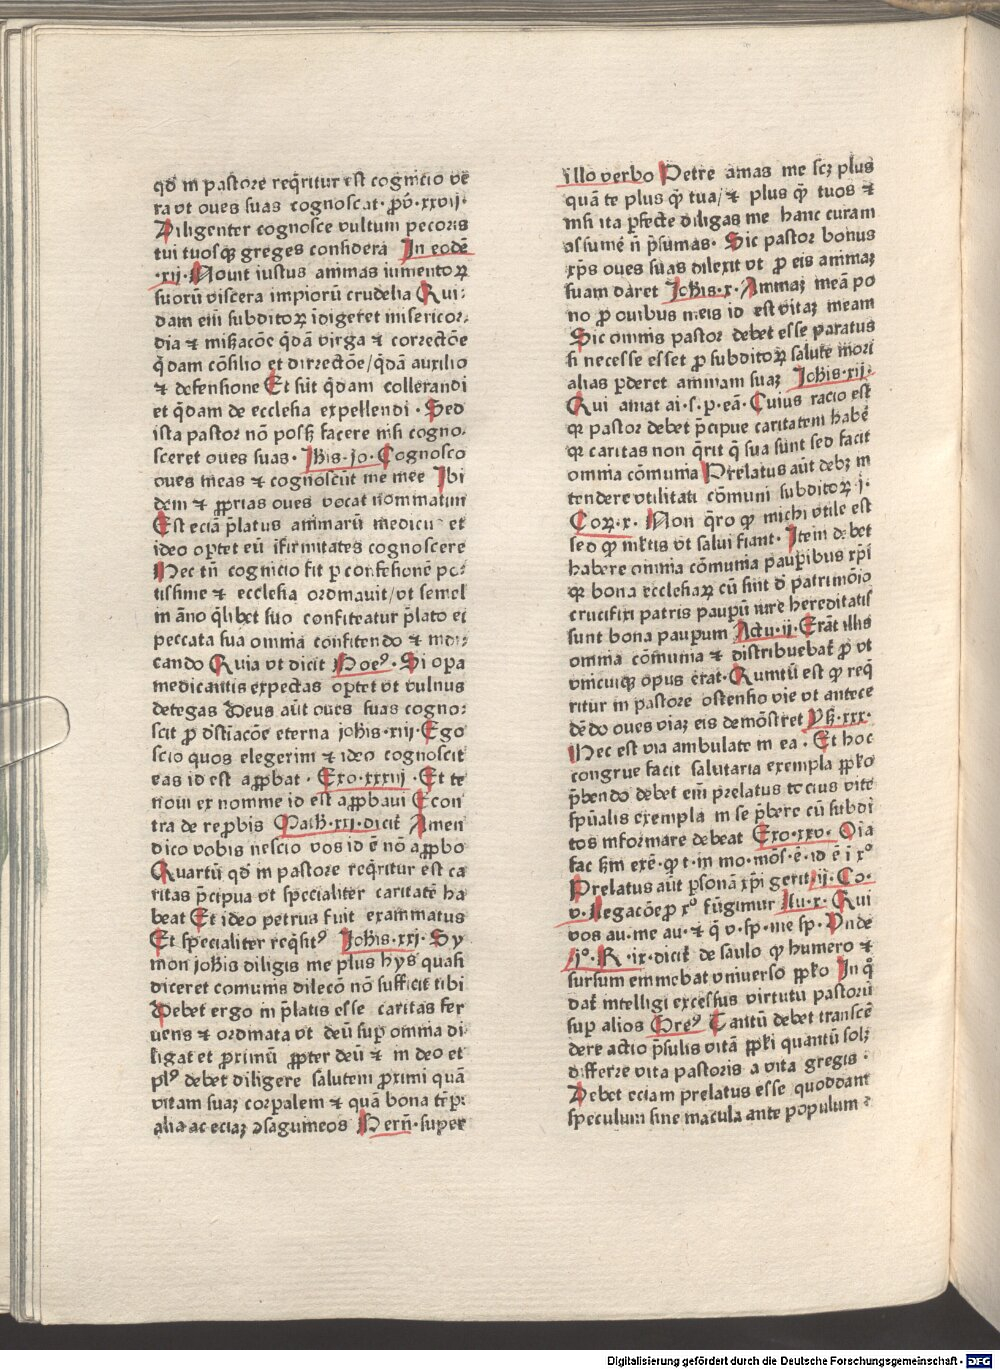 qď in pastore reqͬritur est cognicio ve
ra vt oues suas cognoscat· ꝓv̄·xxvij·
Diligenter cognosce vultum pecoris
tui tuosqꝫ greges considera In eodē
·xij· Nouit iustus animas iumentoꝝ
suorū viscera impiorū crudelia Qui-
dam em̄ subditoꝝ īdigeret misericor-
dia ⁊ miẜacōe q̄dā virga ⁊ correctōe
q̄dam cōsilio et dirrectōe/q̄dā auxilio
⁊ defensione Et sūt q̄dam tollerandi
et q̄dam de ecclesia expellendi · Sed
ista pastor nō possꝫ facere nisi cogno-
sceret oues suas· Joħis·jo· Cognosco
oues meas ⁊ cognoscūt me mee Ibi
dem ⁊ ꝓprias oues vocat nominatim
Est eciā p̄latus animarū medicu et
ideo oꝑtet eū īfirmitates cognoscere
Nec tn̄ cognicio fit ꝑ confessionē po-
tissime ⁊ ecclesia ordinauit/vt semel
in āno q̄libet suo confiteatur p̄lato ei
peccata sua omnia confitendo ⁊ indi-
cando Quia vt dicit Boeꝰ· Si opa
medicantis expectas oꝑtet vt vulnus
detegas Deus aūt oues suas cogno-
scit ꝓ dꝰstiācōe eterna joħis·xiij·Ego
scio quos elegerim ⁊ ideo cognoscit
eas id est aꝓbat · Exo·xxxiij · Et te
noui ex nomine id est aꝓbaui Econ
tra de reꝓbis Math·xxv·dicit̄ Amen
dico vobis nescio vos id ē nō aꝓbo
Quartū qď in pastore reqͬritur est ca
ritas p̄cipua vt specialiter caritatē ha
beat Et ideo petrus fuit examinatus
Et specialiter reqͥsitꝰ Joħis·xxj· Sy
mon joħis diligis me plus hys quasi
diceret comunis dilecō nō sufficit tibi
Debet ergo in p̄latis esse caritas fer
uens ⁊ ordinata vt deū suꝑ omnia di-
ligat et ꝓximū ꝓpter deū ⁊ in deo et
plꝰ debet diligere salutem ꝓximi quā
vitam suaꝫ corpalem ⁊ quā bona tꝑp-
alia ac eciaꝫ ꝯsagumeos Bern̄·super
illo verbo Petre amas me scꝫ plus
quā te plus q̄ tua/⁊ plus q̄ tuos ⁊
nisi ita ꝑfecte diligas me hanc curam
assumē n̄ p̄sumas· Sic pastor bonus
xp̄s oues suas dilexit vt ꝓ eis animaꝫ
suam daret Joħis·x· Animaꝫ meā po
no ꝓ ouibus meis id est vitaꝫ meam
Sic omnis pastor debet esse paratus
si necesse esset ꝓ subditoꝝ salute mori
alias ꝑderet animam suaꝫ Joħis·xij·
Qui amat ai·s·p·eā· Cuius racio est
qꝛ pastor debet p̄cipue caritatem habē
qꝛ caritas non q̄rit q̄ sua sunt sed facit
omnia cōmunia Prelatus aūt debꝫ in
tendere vtilitati cōmuni subditoꝝ j·
Coꝝ·x· Non q̄ro qꝙ michi vtile est
sed qꝙ ml̄tis vt salui fiant· Item debet
habere omnia cōmunia pauꝑibus xp̄i
qꝛ bona ecclesiaꝝ cū sint ď patrimōio
crucifixi patris pauꝑū iure hereditatis
sunt bona pauperum Actu·ij·Erāt illis
omnia cōmunia ⁊ distribuebat̄ ꝓ vt
vnicuiqꝫ opus erat· Quintū est qꝙ req̄
ritur in pastore ostensio vie vt antece
dēdo oues viaꝫ eis demōstret Yß·xxx·
Hec est via ambulate in ea · Et hoc
congrue facit salutaria exempla ꝓplo
p̄bendo debet em̄ prelatus tocius vite
sp̄ualis exempla in se p̄bere cū subdi
tos informare debeat Exo·xxv· Oīa
fac ẜm exē·qꝙ t·in mo·mōs·ē·id ē ī xº
Prelatus aūt ꝑsonā xp̄i gerit ij·Co·
v· Legacōe ꝓ xº fūgimur Lu·x· Qui
vos au·me au·⁊ q̄ v·sp·me sp· Vnde
jº·R·ix·dicit̄ de saulo qꝙ humero ⁊
sursum eminebat vniuerso ꝓplo In qͦ
dat̄ intelligi excessus virtutū pastorū
suꝑ alios Greꝰ Tantū debet transcē
dere actio p̄sulis vitā ꝓpli quantū solꝫ
differre vita pastoris a vita gregis ·
Debet eciam prelatus esse quoddam
speculum sine macula ante populum ⁊
Digitalisierung gefördert durch die Deutsche Forschungsgemeinschaft - DFG